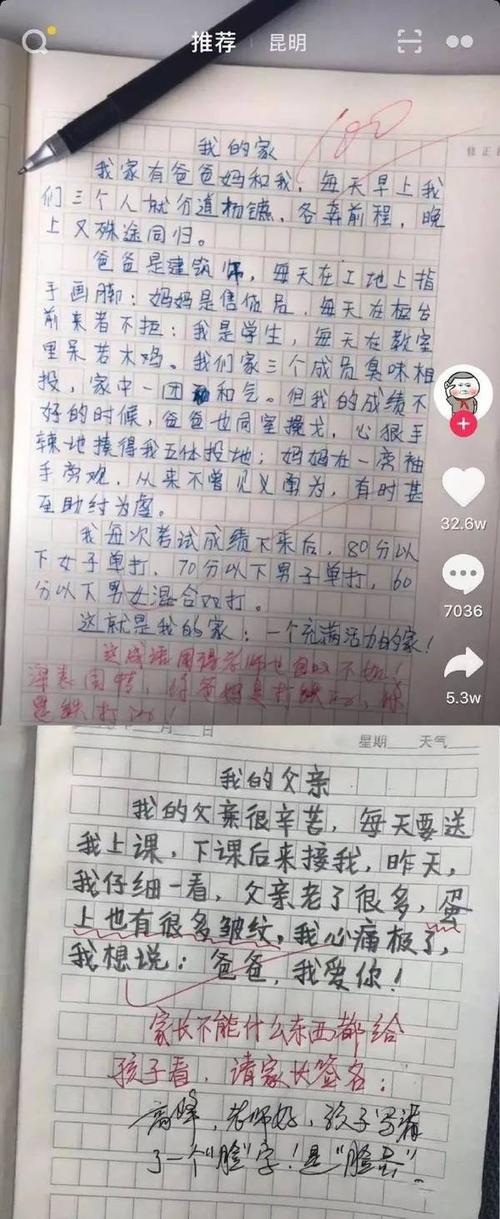 推荐
昆明
100
修正
我的家
我家有爸爸妈和我，每天早上我
们三个人就分道扬镳，各奔前程，晚
上又殊途同归。
爸爸是建筑师，每天在工地上指
手画脚；妈妈是售货员，每天在柜台
前来者不拒；我是学生，每天在教室
里呆若木鸡。我们家三个成员臭味相
投，家中一团和气。但我的成绩不
好的时候，爸爸也同室操戈，心狠手
辣地揍得我五体投地；妈妈在一旁袖
手旁观，从来不曾见义勇为，有时甚
至助纣为虐。
我每次考试成绩下来后，80分以
下女子单打，70分以下男子单打，60
分以下男女混合双打。
这就是我的家：一个充满活力的家！
这成语用得老师也自叹不如！
深表同情，
32.6w
7036
5.3w
月 日
星期 天气
我的父亲
我的父亲很辛苦，每天要送
我上课，下课后来接我，昨天，
我仔细一看，父亲老了很多，蛋
上也有很多皱纹，我心痛极了，
我想说：爸爸，我爱你！
家长不能什么东西都给
孩子看，请家长签名：
高峰，老师好，孩子写错
了一个“脸”字！是“脸蛋”。